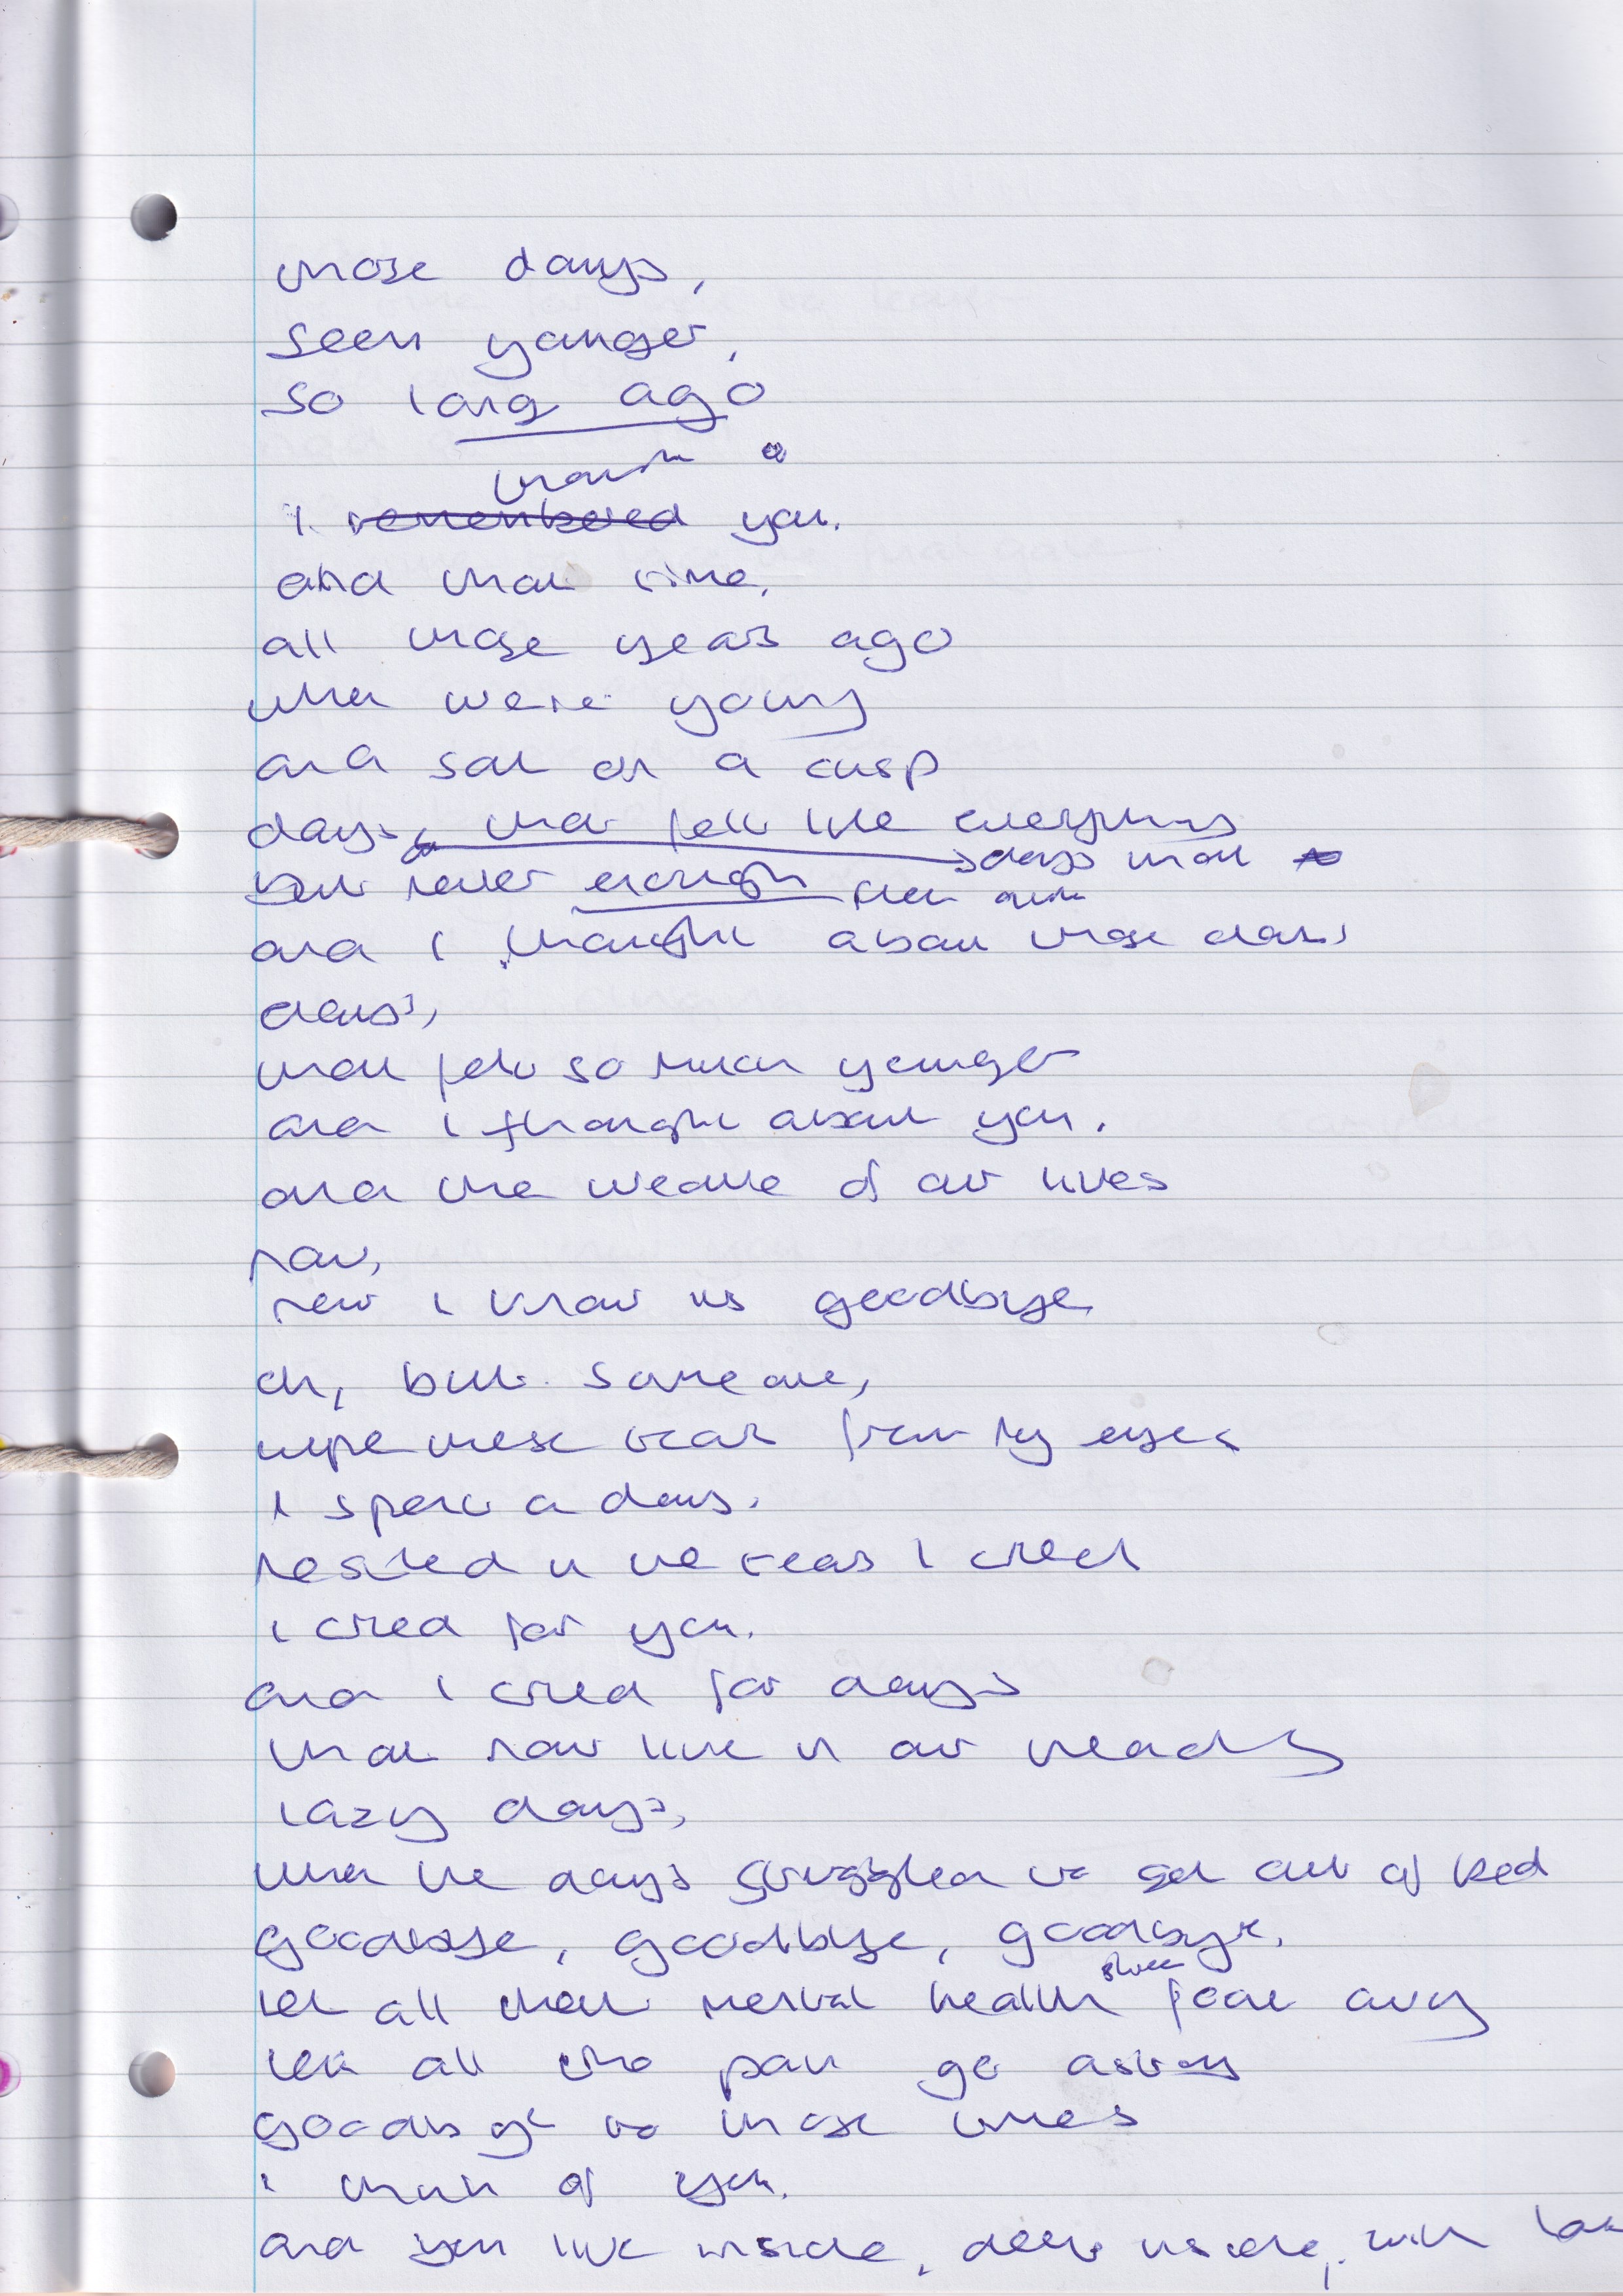 those days,
seem younger,
so long ago
thought of
I remembered you.
and that time,
all those years ago
when were young
and sat on a cusp
days, that felt like everything
days that
but never enough
and I thought about those days
days,
that felt so much younger
and I thought about you.
and the weave of our lives
now,
now I know its goodbye
oh, but someone,
wipe these tears from my eyes
I spent a days.
nestled in the tears I cried
I cried for you.
and I cried for days
that now live in our heads
lazy days,
when the days struggled to get out of bed
goodbye, goodbye, goodbye,
let all that mental health fade away
let all the pain go astray
goodbye to those times
I think of you.
and you live inside, deep inside, with